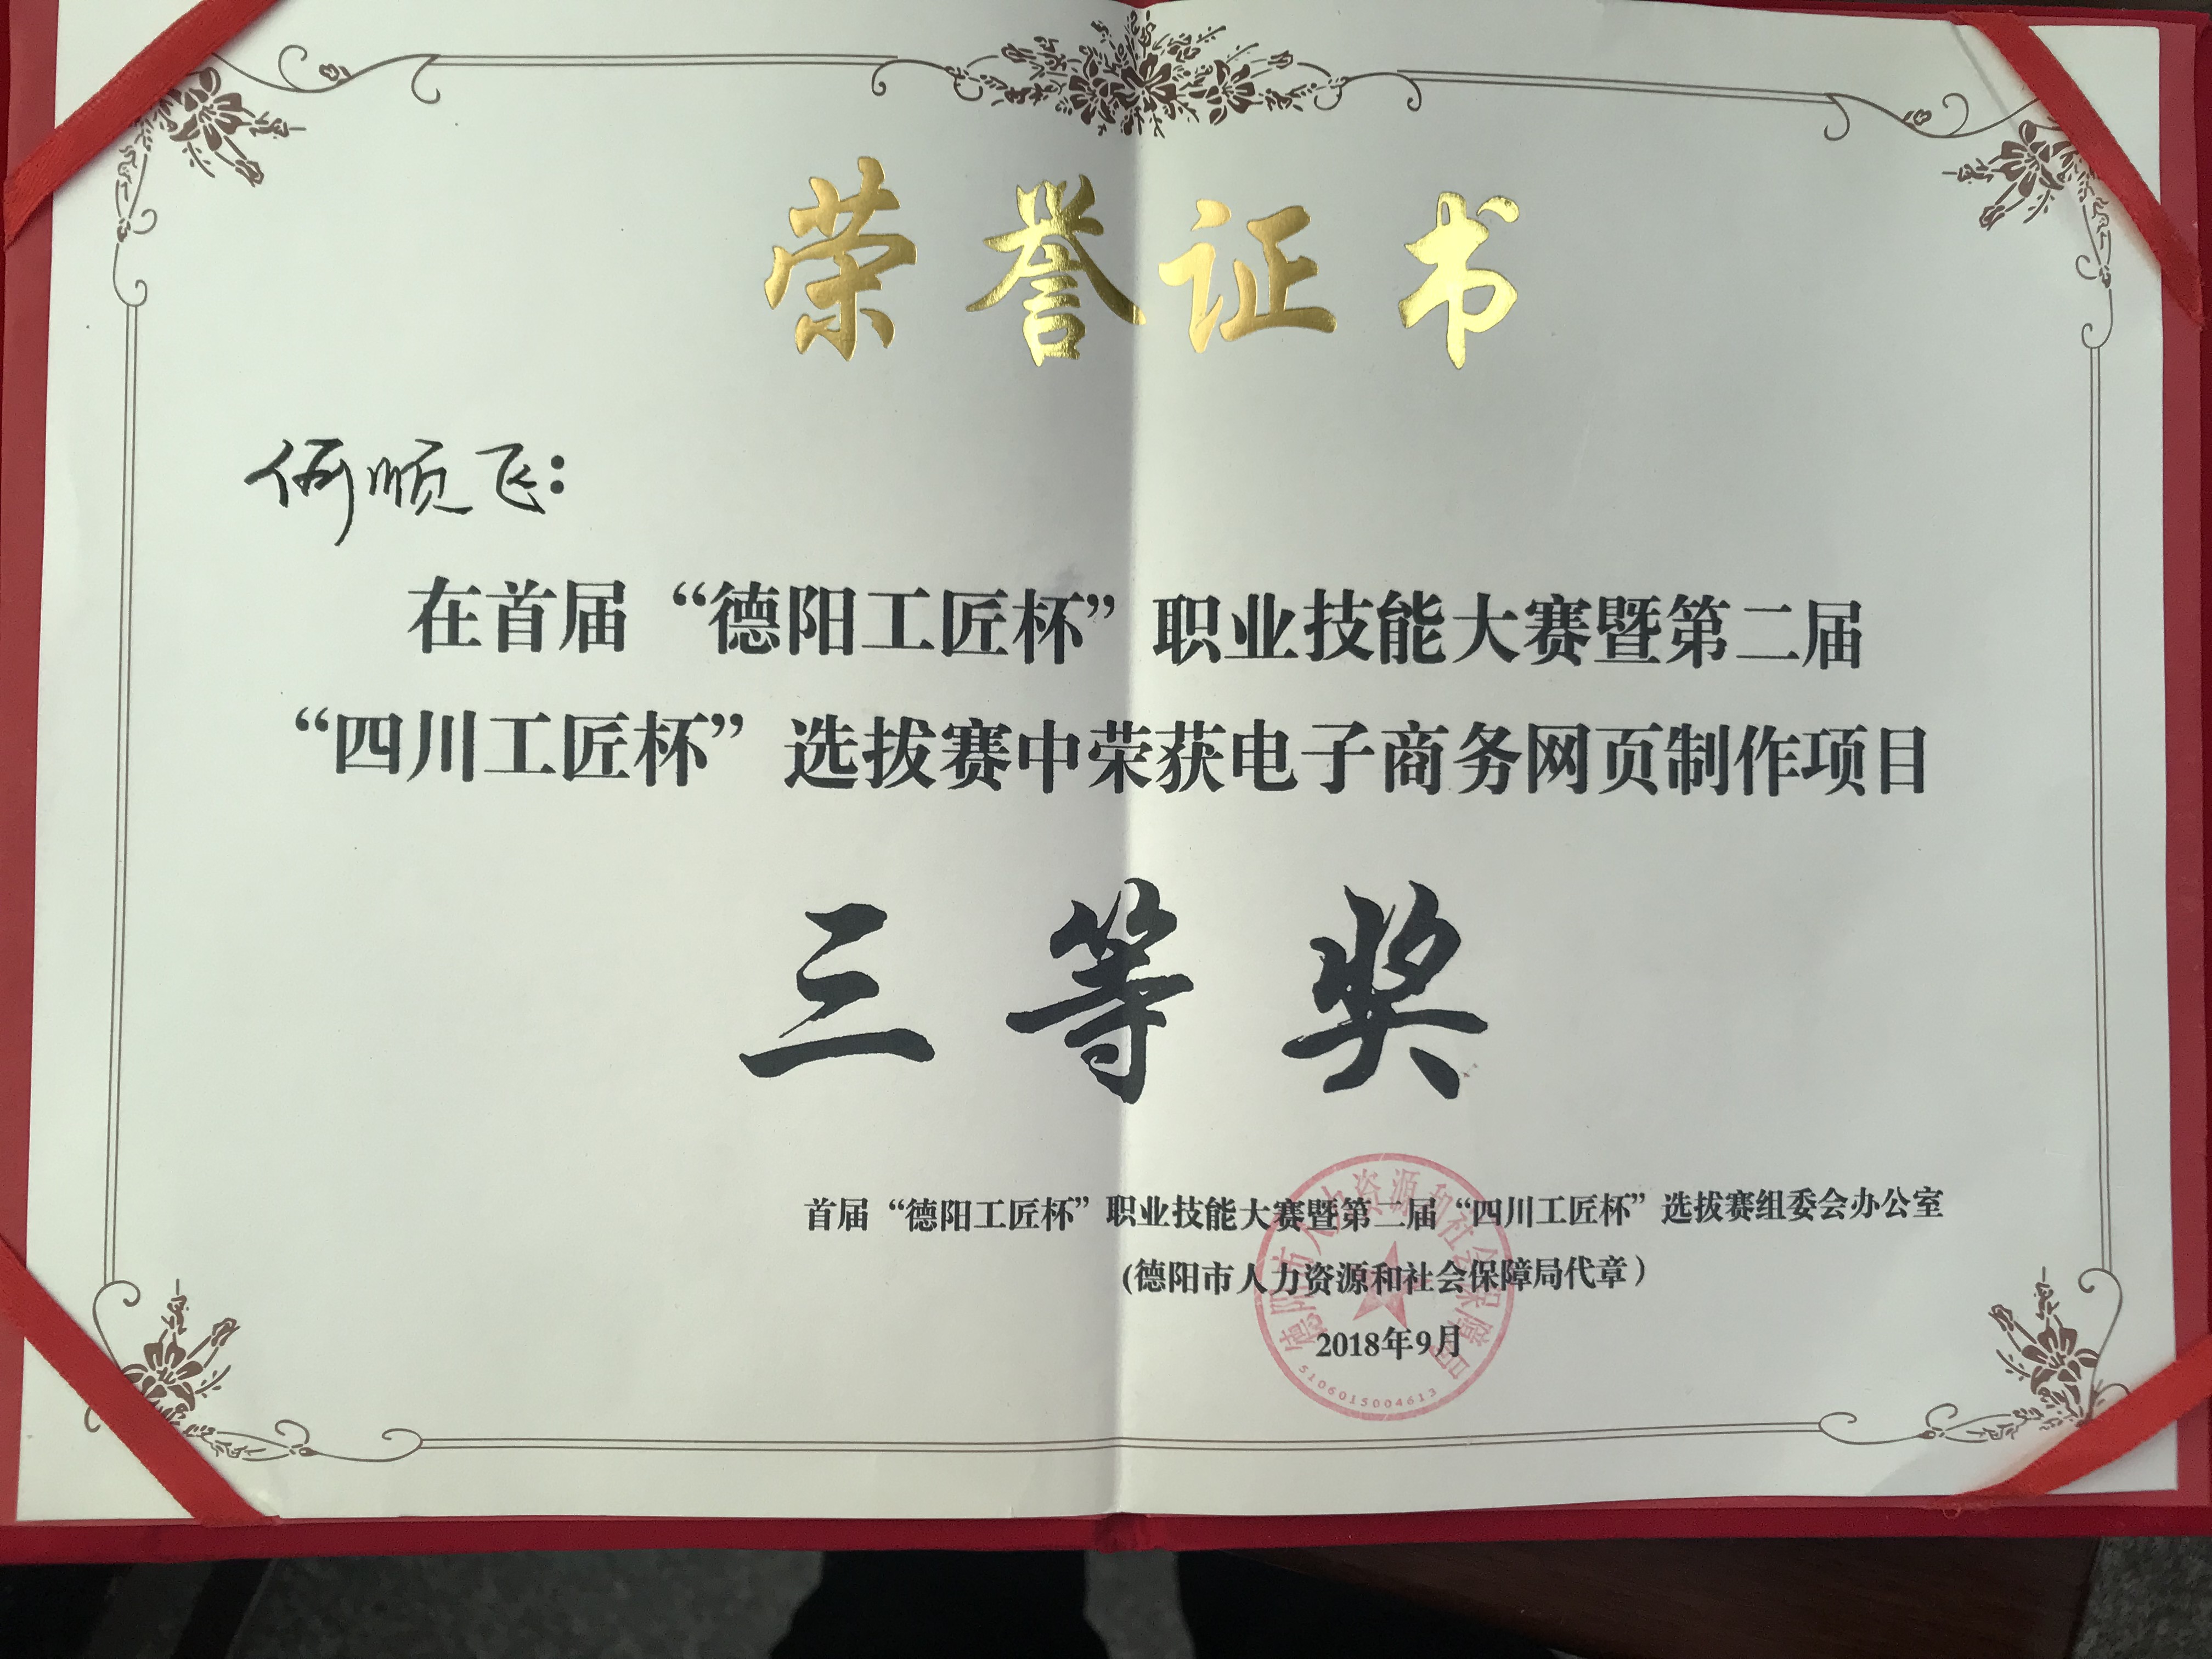 荣誉证书
何顺飞：
在首届“德阳工匠杯”职业技能大赛暨第二届
“四川工匠杯”选拔赛中荣获电子商务网页制作项目
三等奖
首届“德阳工匠杯”职业技能大赛暨第二届“四川工匠杯”选拔赛组委会办公室
(德阳市人力资源和社会保障局代章）
2018年9月
德阳市人力资源和社会保障局
5106015004613